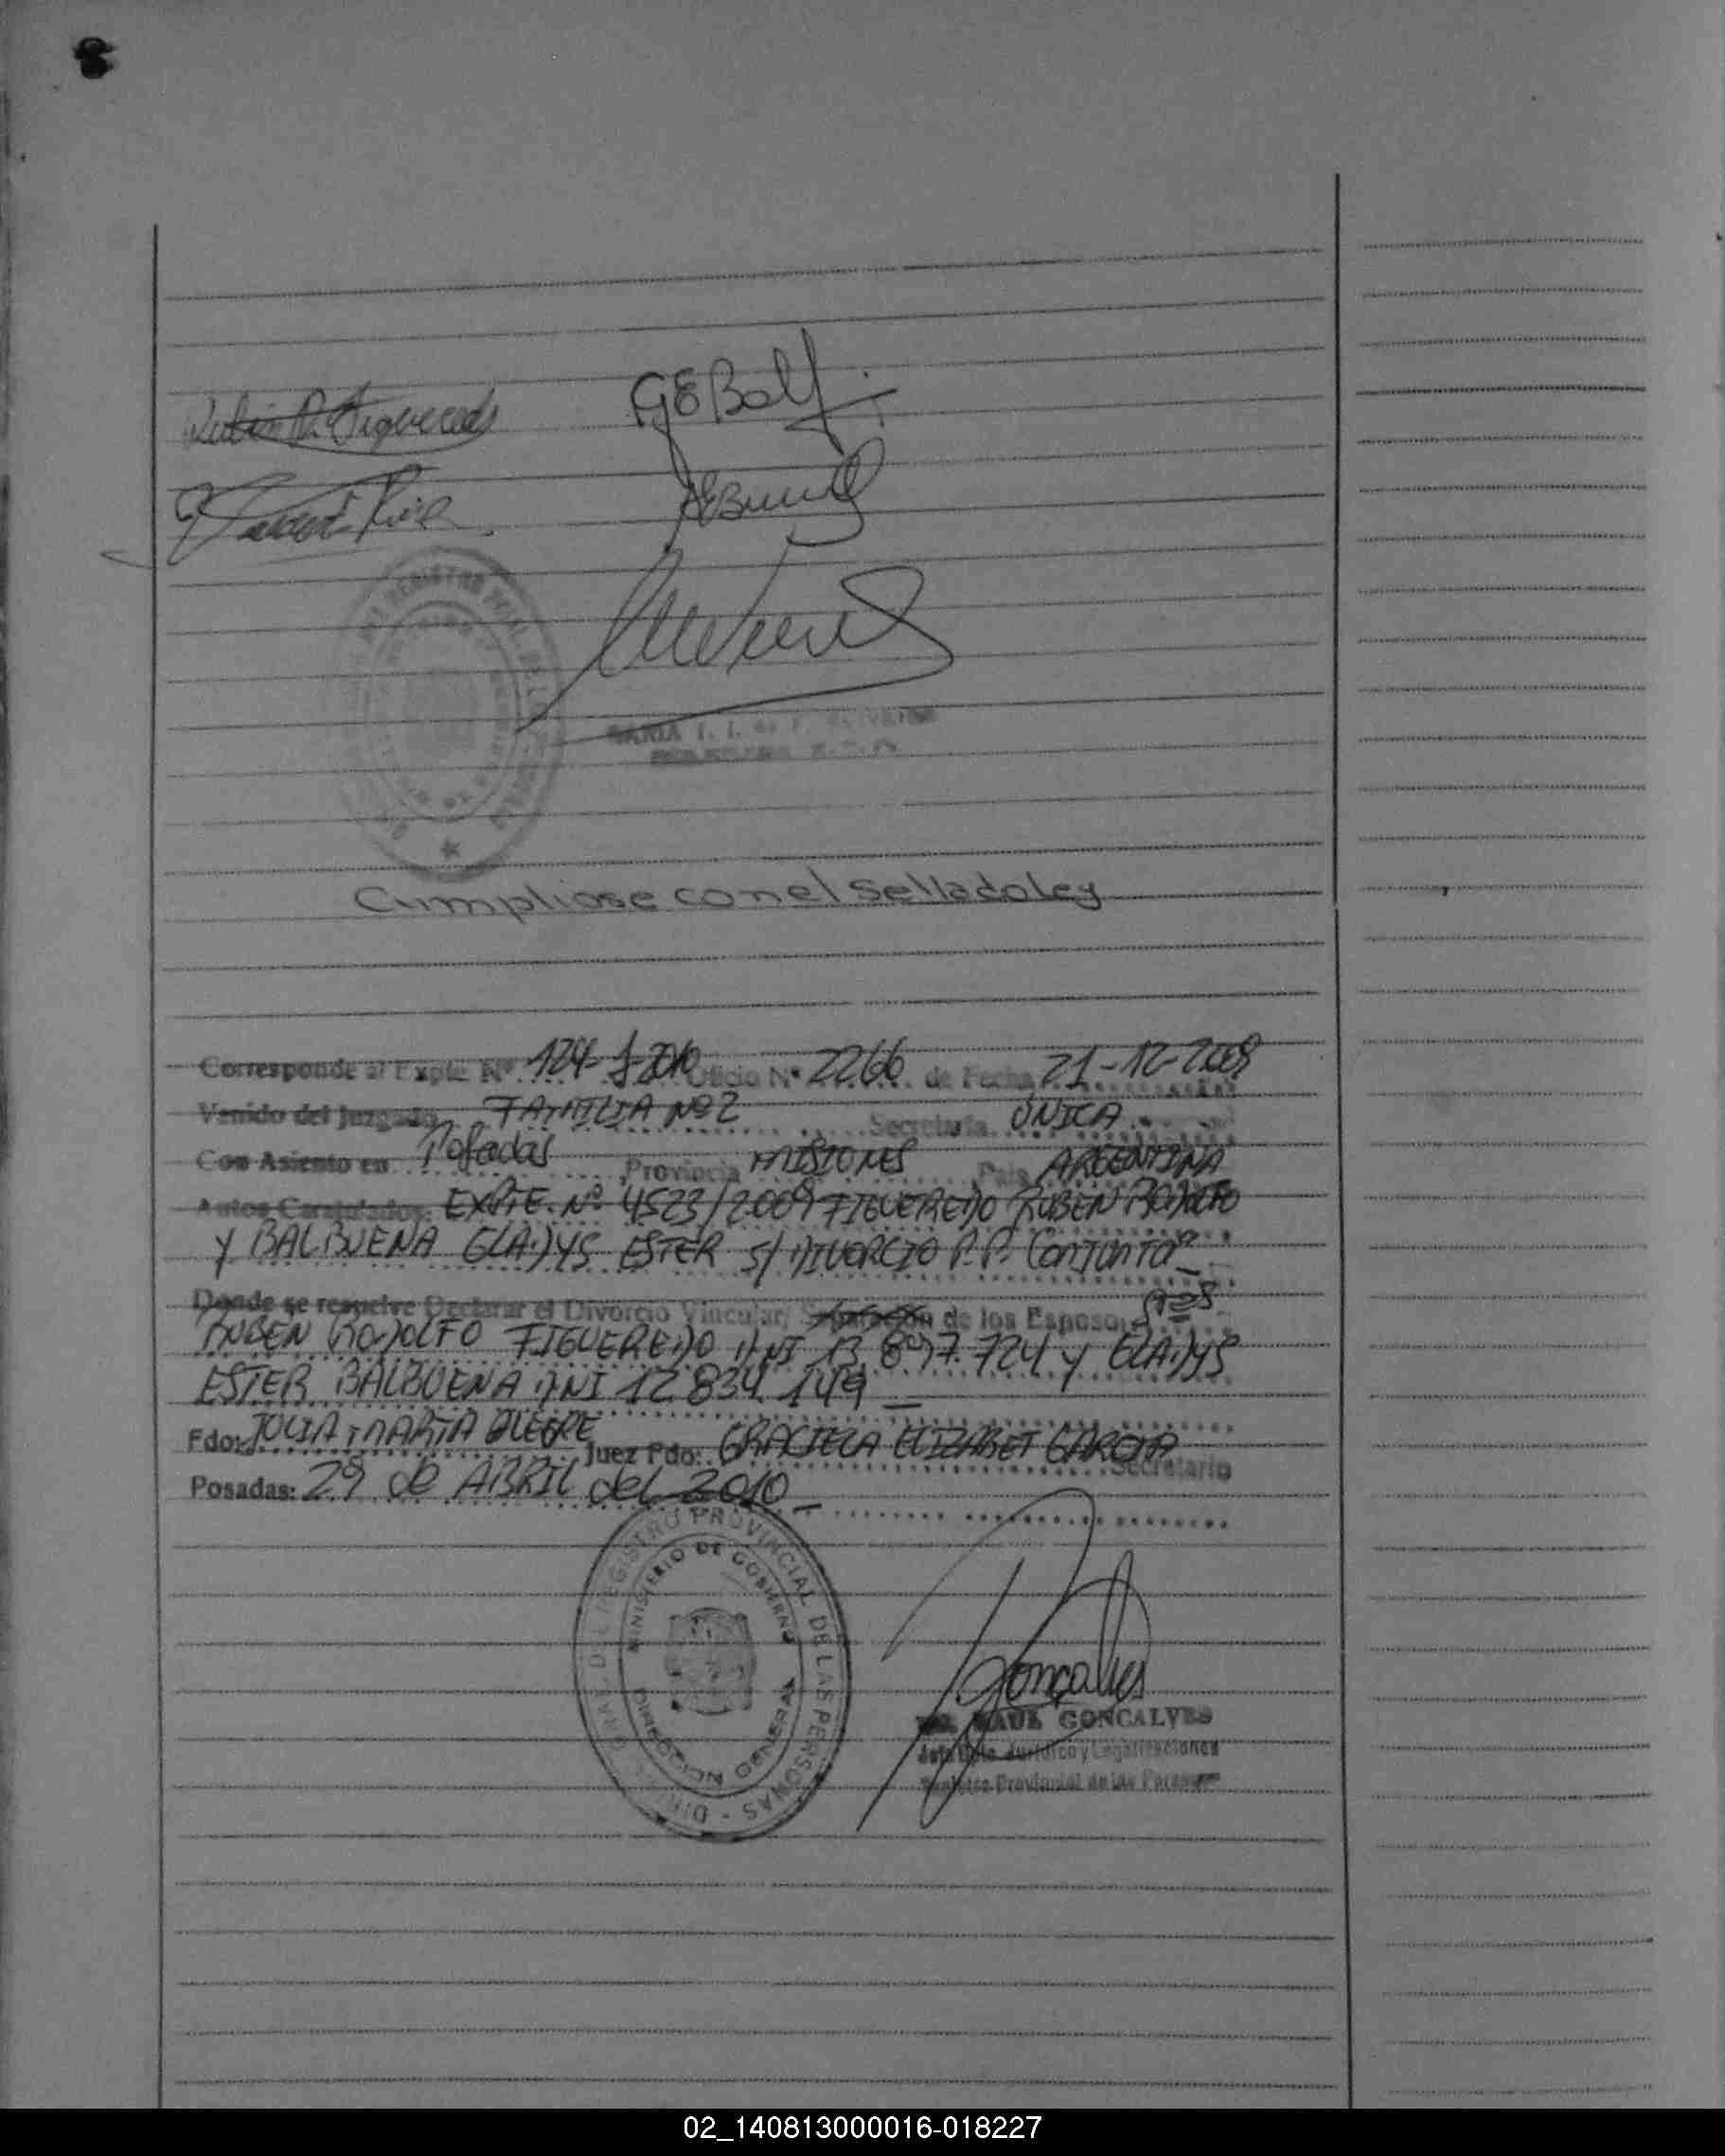 Ruben R. Figueredo
G E Balf
MARIA T. I. de F.
Cumpliose con el Sellado ley
Corresponde al Expte. Nº 124-J-2010 Oficio Nº 2266 de Fecha 21-12-2009
Venido del Juzgado FAMILIA Nº 2 Secretaria UNICA
Con Asiento en Posadas, Provincia MISIONES Pais ARGENTINA
Autos Caratulados: EXPTE. Nº 4523/2009 FIGUEREDO RUBEN RODOLFO
Y BALBUENA GLADYS ESTER S/ DIVORCIO P.P. CONJUNTA
Donde se resuelve Declarar el Divorcio Vincular/ Separación de los Esposos
RUBEN RODOLFO FIGUEREDO DNI 13.897.724 y GLADYS
ESTER BALBUENA DNI 12.834.149
Fdo: JULIA MARTA ALEGRE Juez Fdo: GRACIELA ELIZABET GARCIA Secretario
Posadas: 29 de ABRIL del 2010
DEL REGISTRO PROVINCIAL DE LAS PERSONAS
MINISTERIO DE GOBIERNO
DIRECCION GENERAL
Gonçalves
RAUL GONCALVES
Jurídico y Legalizaciones
Registro Provincial de las Personas
02_140813000016-018227